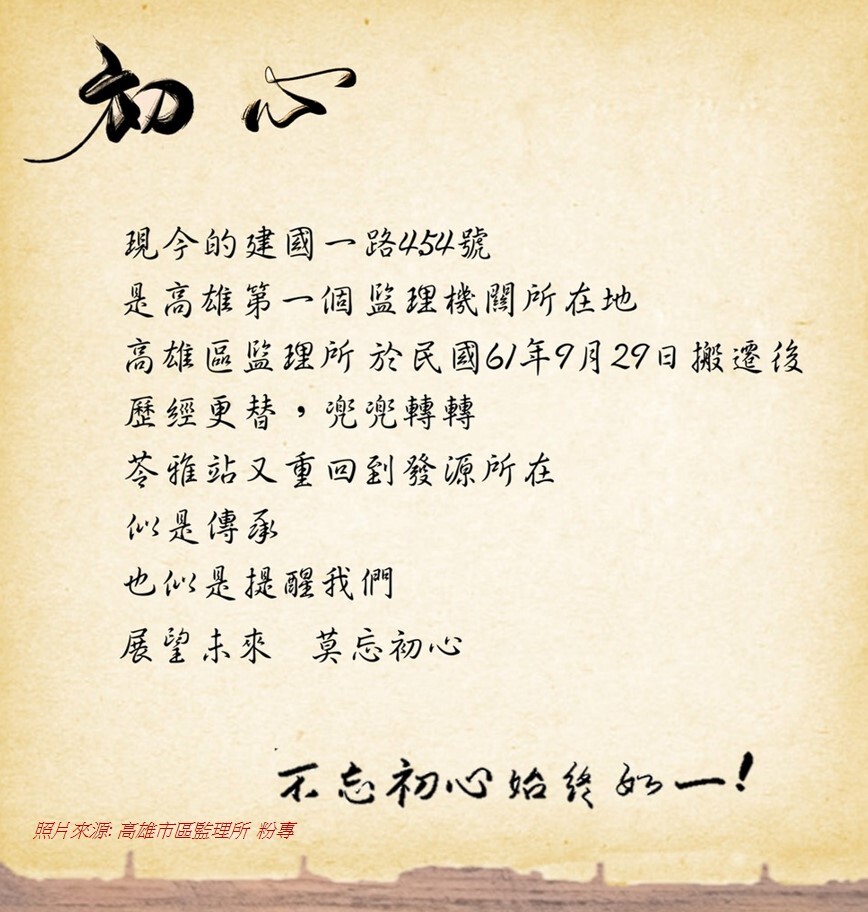 初心
現今的建國一路454號
是高雄第一個監理機關所在地
高雄區監理所 於民國61年9月29日搬遷後
歷經更替，兜兜轉轉
苓雅站又重回到發源所在
似是傳承
也似是提醒我們
展望未來　莫忘初心
不忘初心始終如一！
照片來源: 高雄市區監理所 粉專